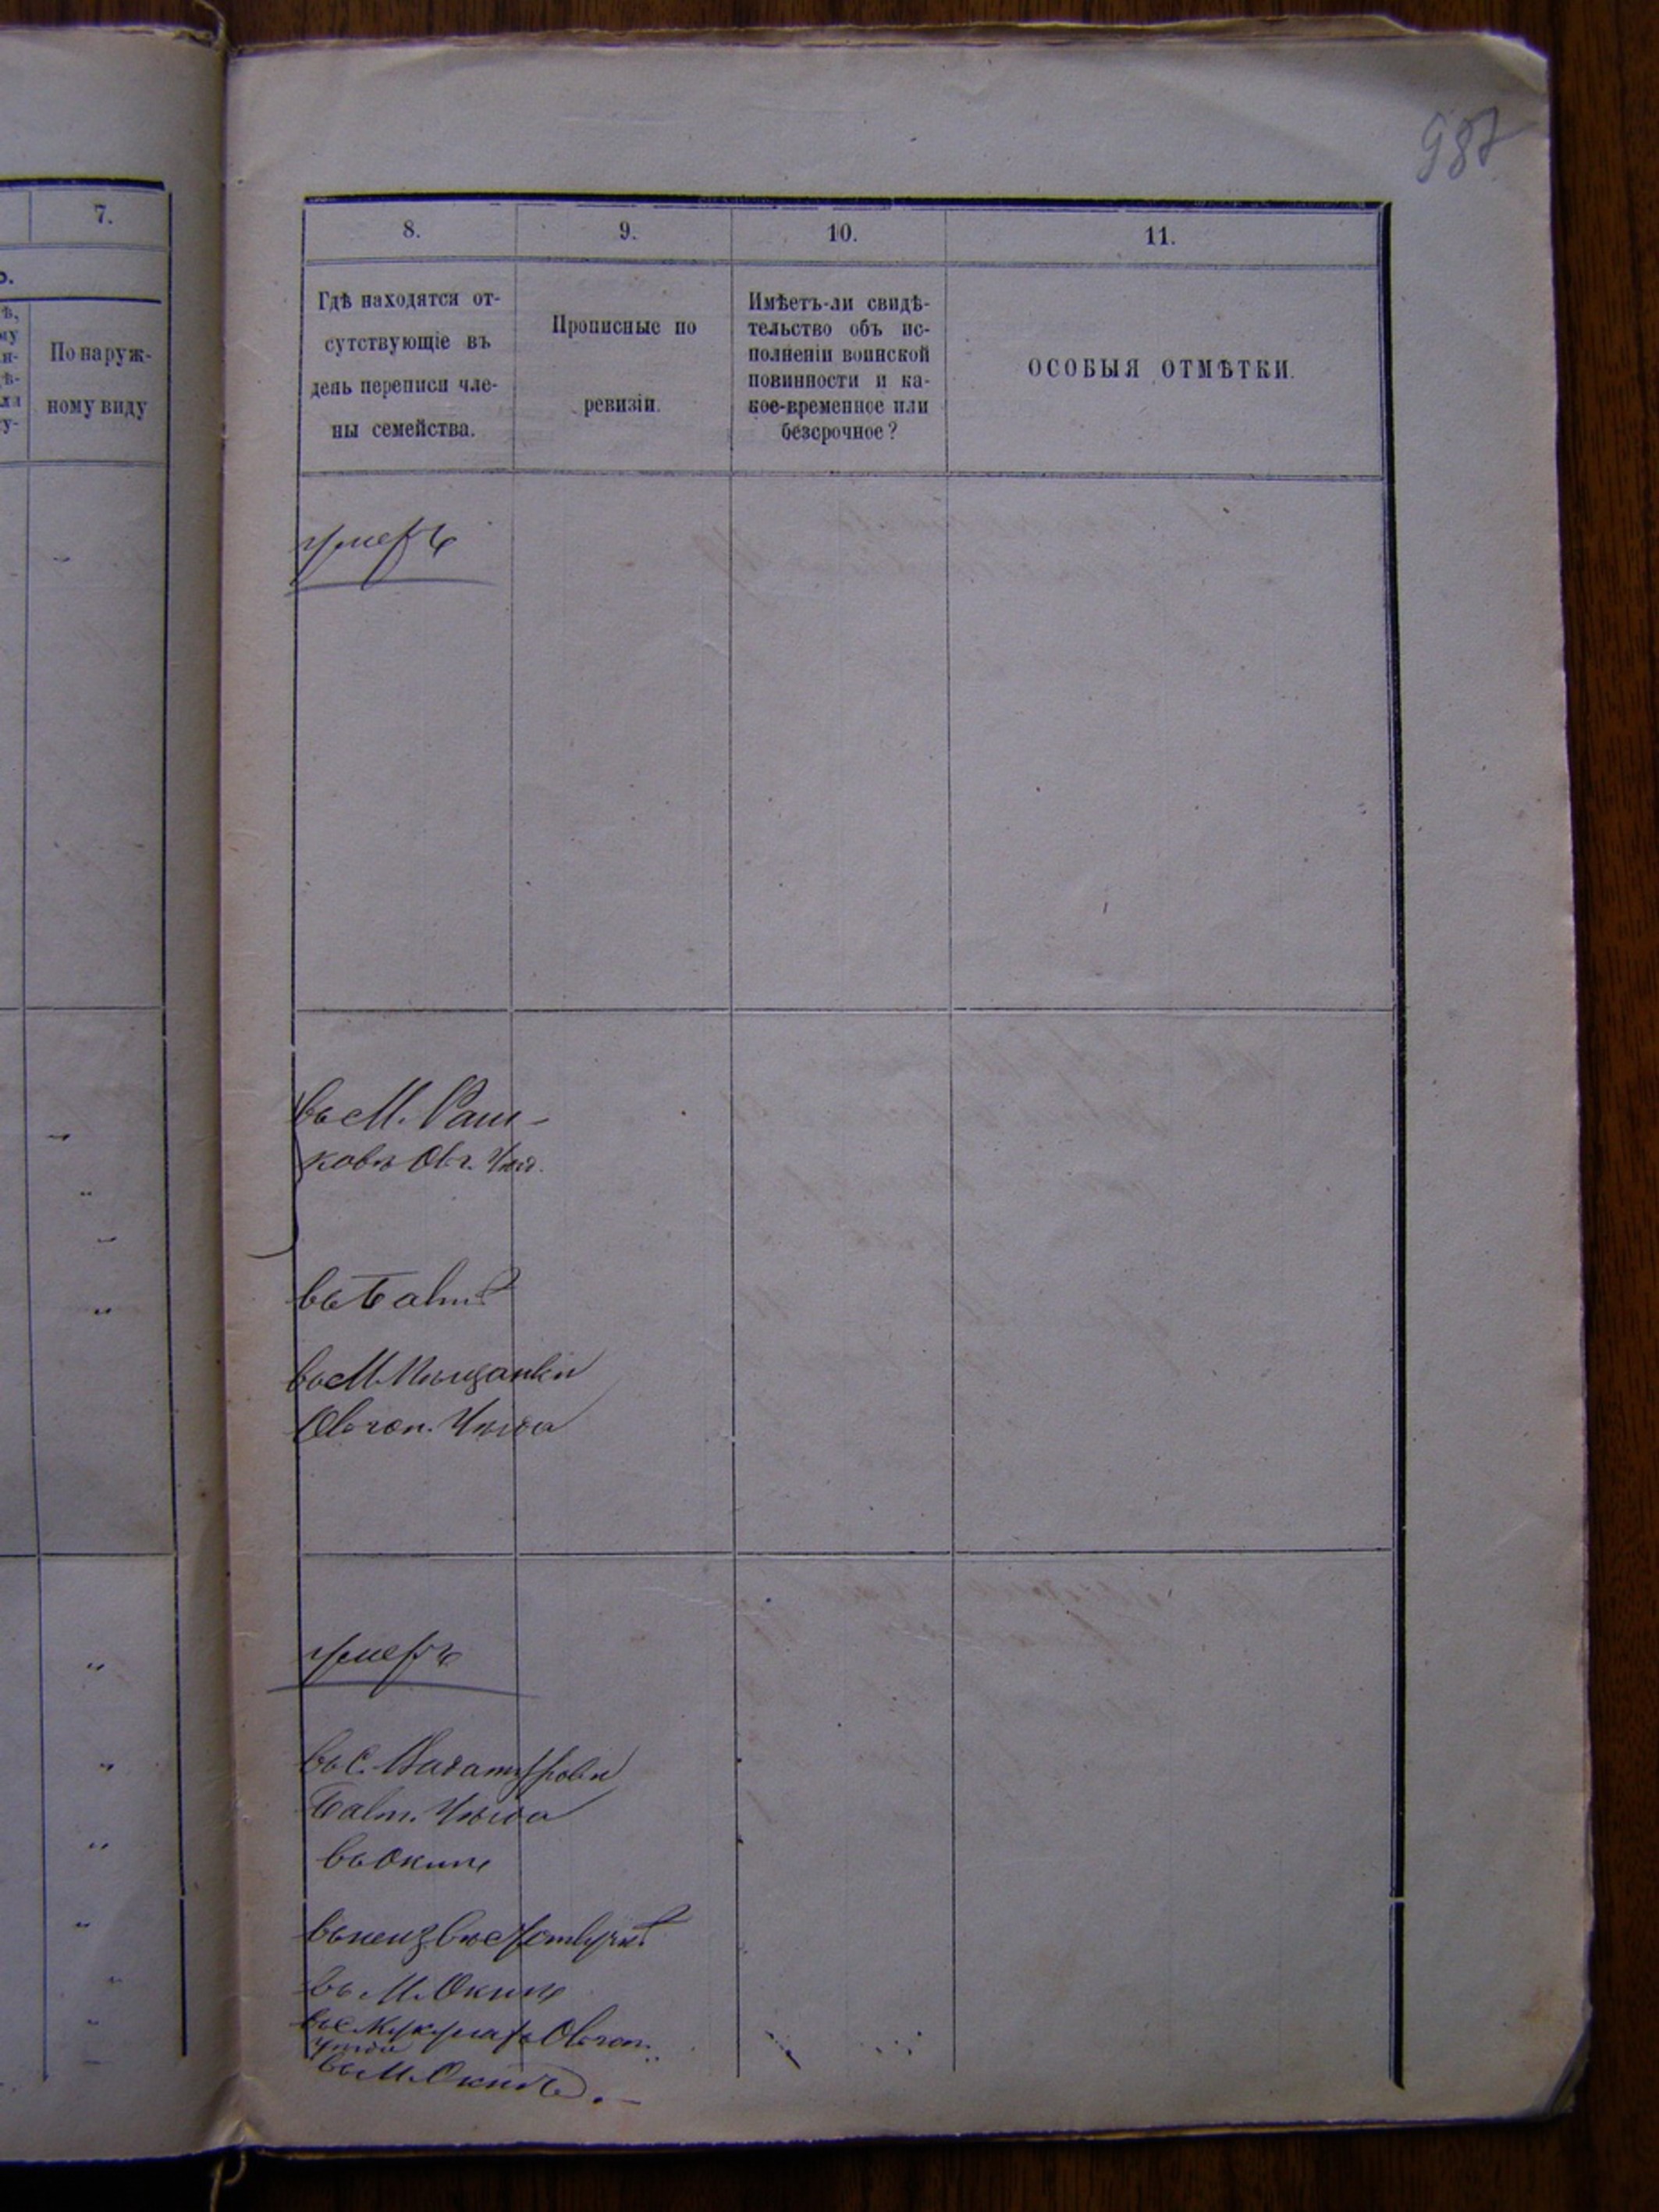 987
7.
По наруж-
ному виду
8.
9.
10.
11.
Гдѣ находятся от-
сутствующіе въ
день переписи чле-
ны семейства.
Прописные по
ревизіи.
Имѣетъ-ли свидѣ-
тельство объ ис-
полненіи воинской
повинности и ка-
кое-временное или
безсрочное?
ОСОБЫЯ ОТМѢТКИ.
умеръ
въ М. Раш-
ковѣ Ольг. Уѣзд.
въ Балтѣ
въ М. Пещанкѣ
Ольгоп. Уѣзда
умеръ
въ С.
Балт. Уѣзда
въ Окнѣ
въ неизвѣс
въ М. Окнѣ
Ольгоп.
Уѣзда
въ М. Окнѣ.